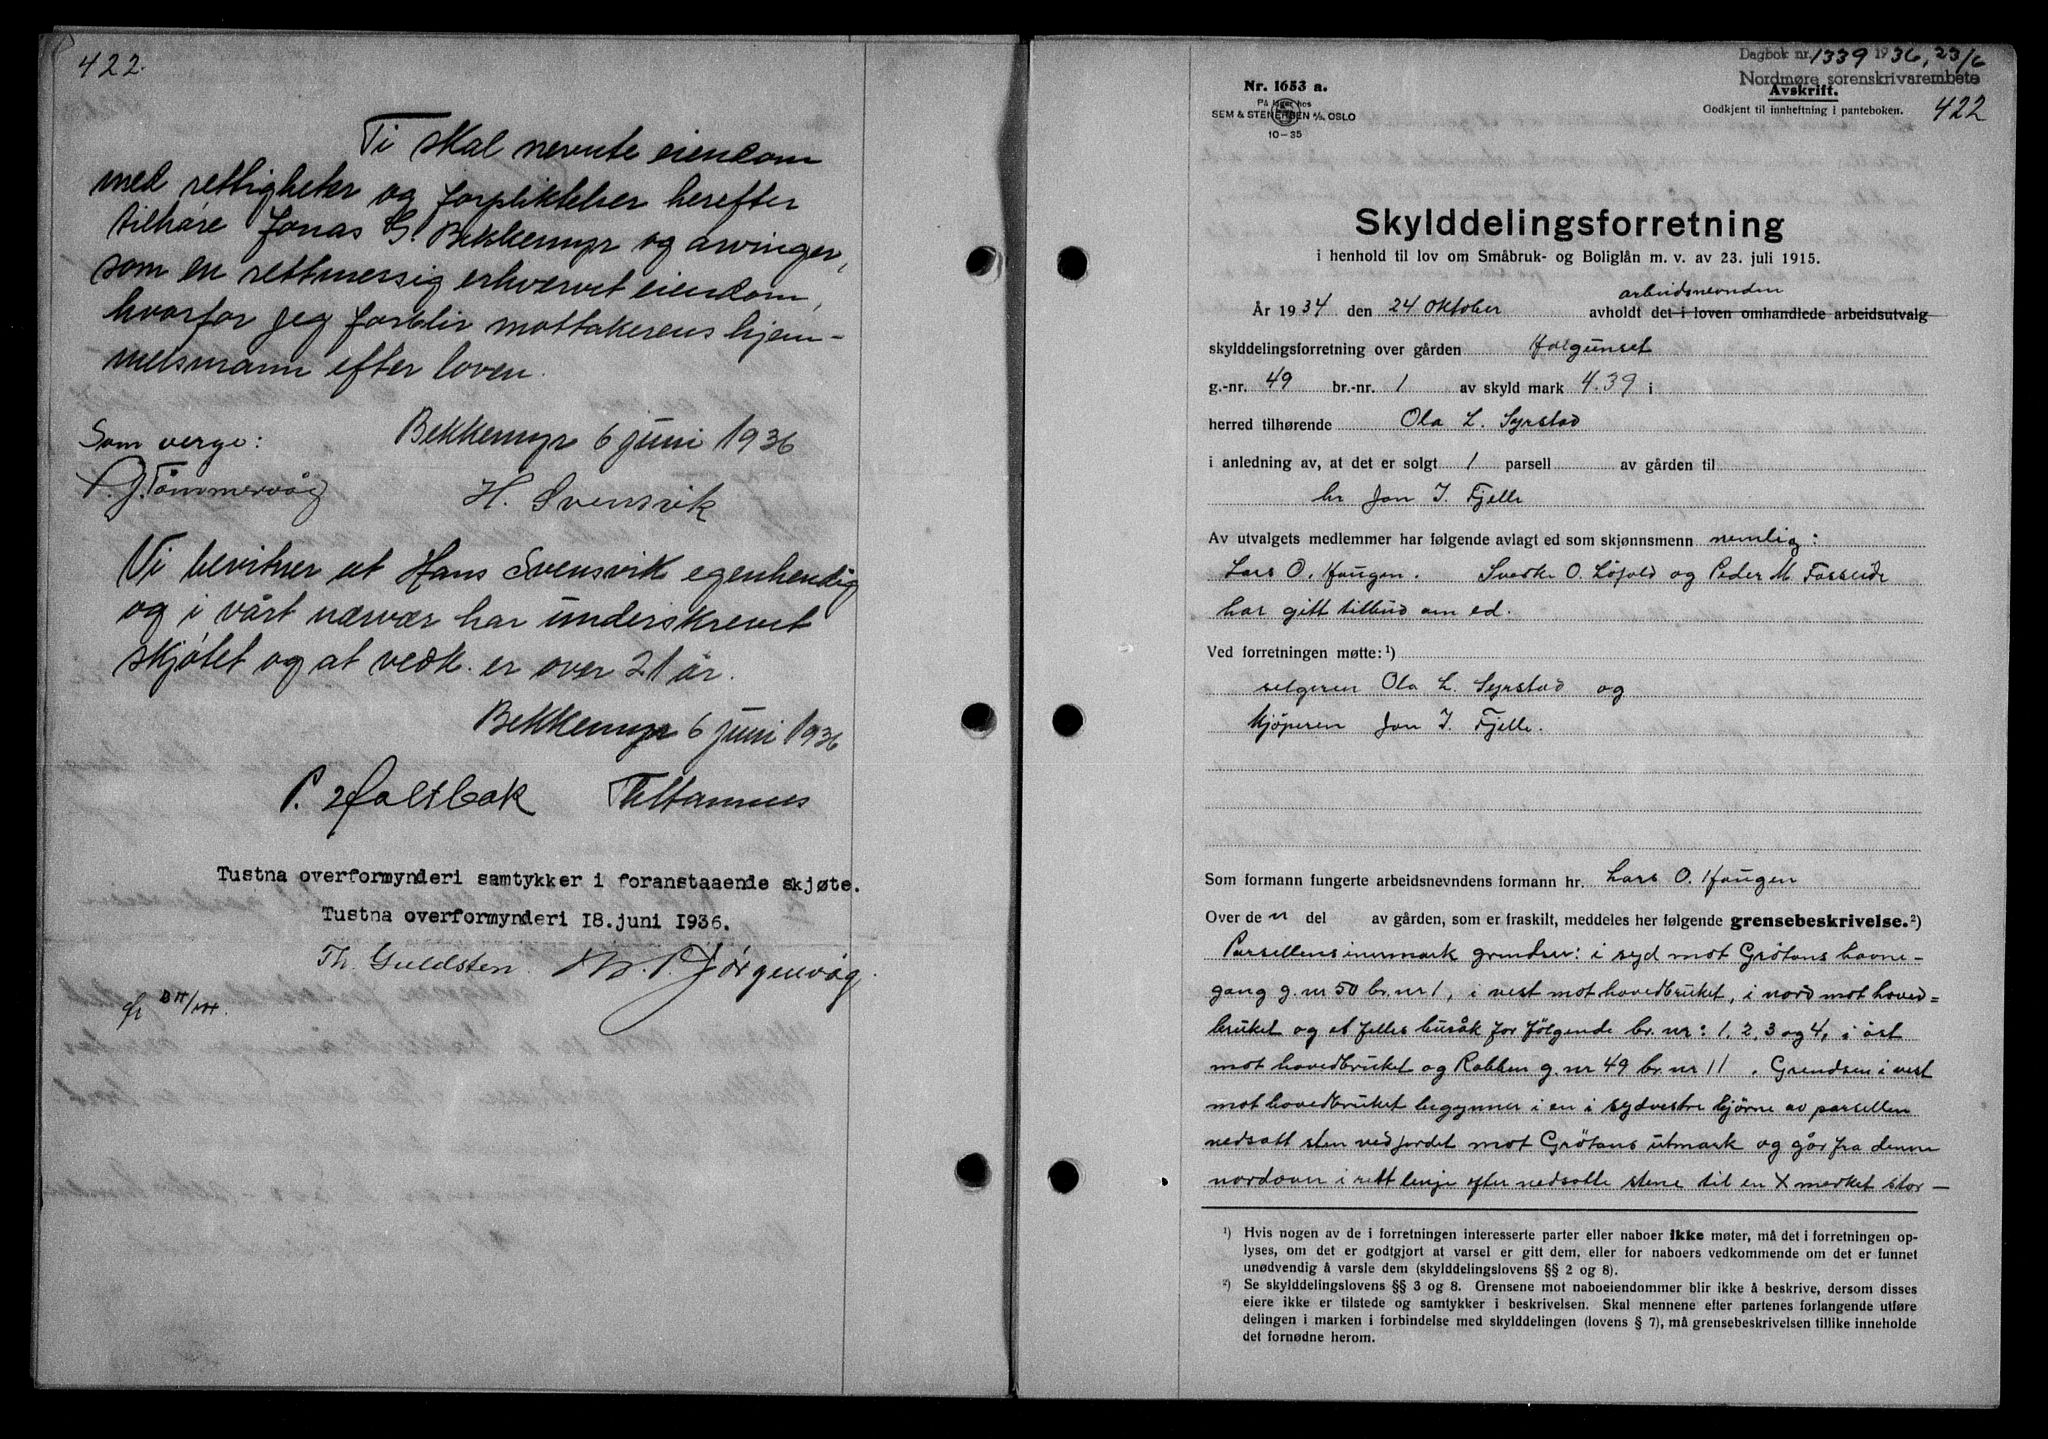 422.
Ti skal nevnte eiendom
med rettigheter og forpliktelser herefter
tilhøre Jonas G. Bekkemyr og arvinger,
som en rettmessig erhvervet eiendom,
hvorfor jeg forblir mottakerens hjem-
melsmann efter loven.
Bekkemyr 6 juni 1936
Som verge:
P. J. Tømmervåg
H. Svensvik
Vi bevitner at Hans Svensvik egenhendig
og i vårt nærvær har underskrevet
skjøtet og at vedk. er over 21 år.
Bekkemyr 6 juni 1936
P. Holsbak
Tustna overformynderi samtykker i foranstaaende skjøte.
Tustna overformynderi 18. juni 1936.
Th. Guldsten. P Jørgenvåg.
Dagbok nr. 1339 1936, 23/6
Nordmøre sorenskrivarembete
Nr. 1653 a.
På lager hos
SEM & STENERSEN A/S, OSLO
10-35
Avskrift.
Godkjent til innheftning i panteboken.
422
Skylddelingsforretning
i henhold til lov om Småbruk- og Boliglån m. v. av 23. juli 1915.
arbeidsnevnden
År 1934 den 24 Oktober avholdt det i loven omhandlede arbeidsutvalg
skylddelingsforretning over gården Halgunset
g.-nr. 49 br.-nr. 1 av skyld mark 4.39 i
herred tilhørende Ola L. Syrstad
i anledning av, at det er solgt 1 parsell av gården til
hr Jon I. Fjelle
Av utvalgets medlemmer har følgende avlagt ed som skjønnsmenn nemlig:
Lars O. Haugen. O. Løfald og Peder M. Fosseide
har gitt tilbud om ed.
Ved forretningen møtte:¹)
selgeren Ola L. Syrstad og
kjøperen Jon I. Fjelle.
Som formann fungerte arbeidsnevndens formann hr. Lars O. Haugen
Over de n del av gården, som er fraskilt, meddeles her følgende grensebeskrivelse.²)
Parsellens innmark grenser: i syd mot Grøtans havne-
gang g. nr 50 br. nr 1, i vest mot hovedbruket, i nord mot hoved=
bruket og et felles buråk for følgende br. nr: 1, 2, 3 og 4, i øst
mot hovedbruket og Rabben g. nr 49 br. nr 11. Grendsen i vest
mot hovedbruket begynner i en i sydvestre hjørne av parsellen
nedsatt sten ved jordet mot Grøtans utmark og går fra denne
nordover i rett linje efter nedsatte stene til en X merket stor-
¹) Hvis nogen av de i forretningen interesserte parter eller naboer ikke møter, må det i forretningen op-
lyses, om det er godtgjort at varsel er gitt dem, eller for naboers vedkommende om det er funnet
unødvendig å varsle dem (skylddelingslovens §§ 2 og 8).
²) Se skylddelingslovens §§ 3 og 8. Grensene mot naboeiendommer blir ikke å beskrive, dersom disses
eiere ikke er tilstede og samtykker i beskrivelsen. Skal mennene efter partenes forlangende utføre
delingen i marken i forbindelse med skylddelingen (lovens § 7), må grensebeskrivelsen tillike inneholde
det fornødne herom.